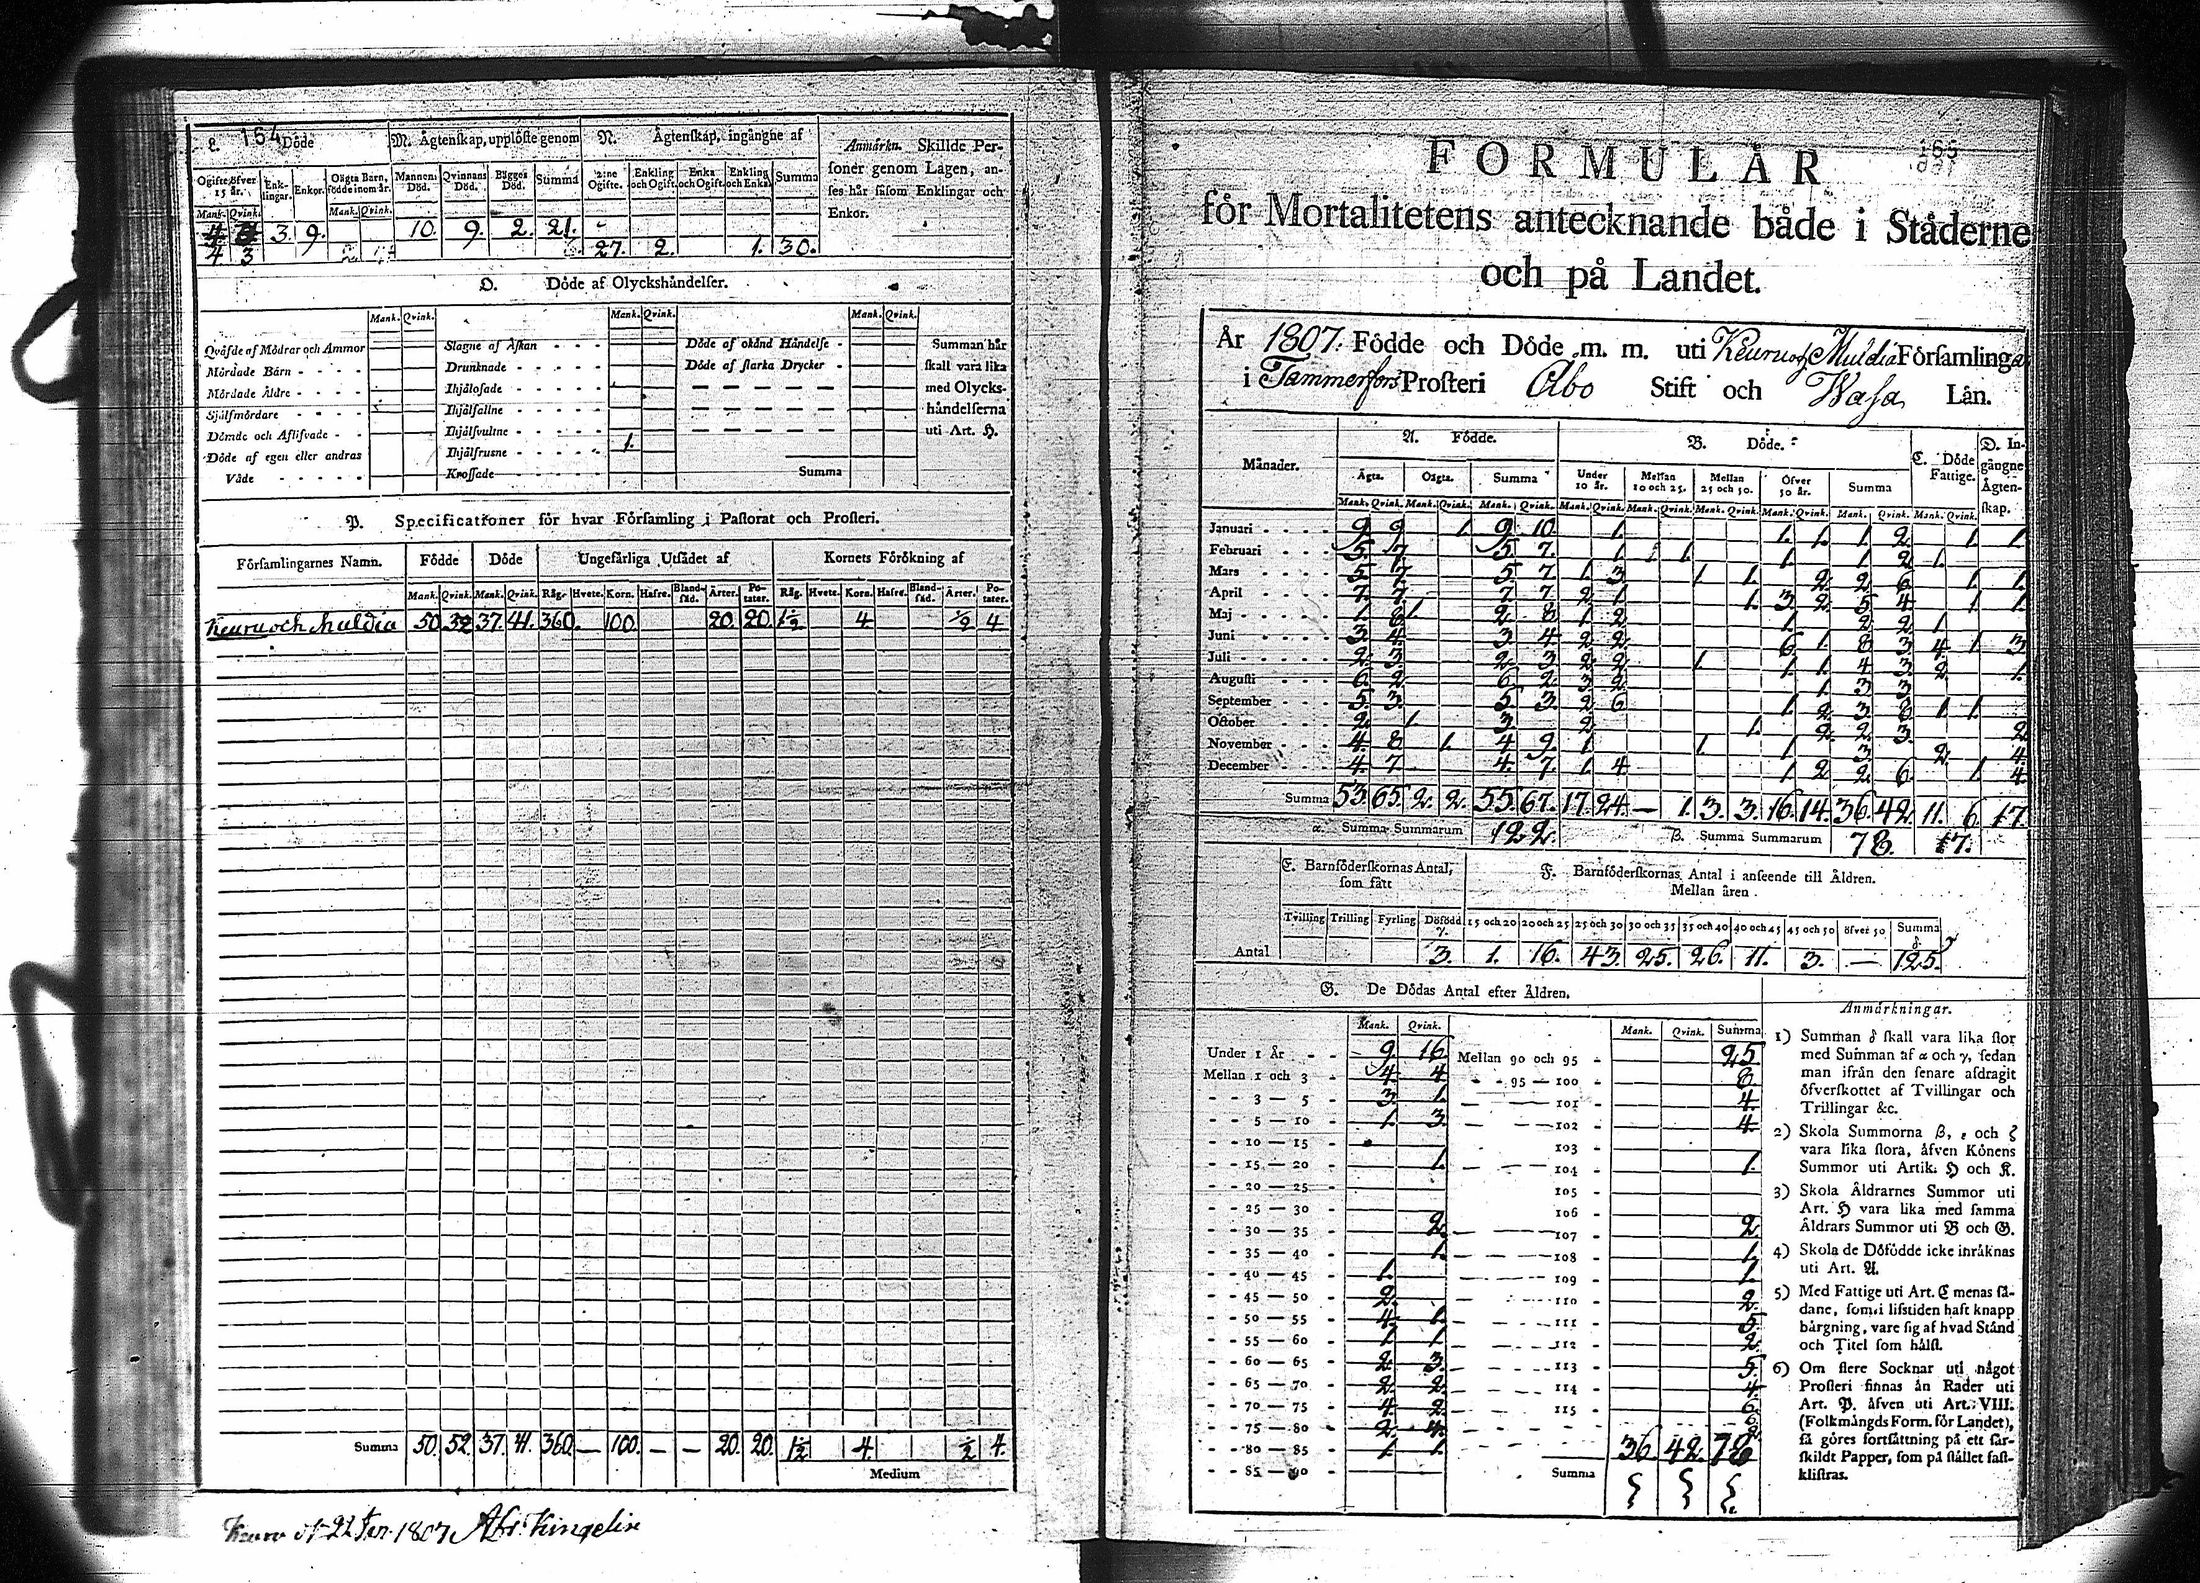 L. 154 Döde M. Ägtenskap, upplöste genom N. Ägtenskap, ingångne af
Anmärkn. Skillde Personer genom Lagen, anses här såsom Enklingar och Enkor.
Ogifte öfver 15 år. Enklingar. Enkor. Oägta Barn, födde inom år. Mannens Död. Qvinnans Död. Bägges Död. Summa 2:ne Ogifte. Enkling och Ogift. Enka och Ogift. Enkling och Enka. Summa
Mank. Qvink. Mank. Qvink.
3. 9. 10. 9. 2. 21.
4 3 27. 2. 1. 30.
O. Döde af Olyckshändelser.
Mank. Qvink. Mank. Qvink. Mank. Qvink.
Qväfde af Mödrar och Ammor Slagne af Åskan Döde af okänd Händelse Summan här
Mördade Barn Drunknade Döde af starka Drycker skall vara lika
Mördade Äldre Ihjälosade med Olycks-
Sjelfmördare Ihjälfallne händelserna
Dömde och Aflifvade Ihjälsvultne uti Art. H.
Döde af egen eller andras Ihjälfrusne 1.
Våde Krossade Summa
P. Specificationer för hvar Församling i Pastorat och Prosteri.
Församlingarnes Namn. Födde Döde Ungefärliga Utsädet af Kornets Förökning af
Mank. Qvink. Mank. Qvink. Råg. Hvete. Korn. Hafre. Blandsäd. Ärter. Potater. Råg. Hvete. Korn. Hafre. Blandsäd. Ärter. Potater.
Keuru och Muldia 50 52 37. 41. 360. 100. 20. 20. 1½ 4 ½ 4
Summa 50. 52. 37. 41. 360. — 100. — — 20. 20. 1½ 4. ½ 4.
Medium
1807
165
FORMULÄR
för Mortalitetens antecknande både i Städerne
och på Landet.
År 1807. Födde och Döde m. m. uti Keuru och Muldia Församlingar
i Tammerfors Prosteri Åbo Stift och Wasa Län.
Månader. A. Födde. B. Döde. C. Döde Fattige. D. Ingångne Ägtenskap.
Ägta. Oägta. Summa Under 10 år. Mellan 10 och 25. Mellan 25 och 50. Öfver 50 år. Summa
Mank. Qvink. Mank. Qvink. Mank. Qvink. Mank. Qvink. Mank. Qvink. Mank. Qvink. Mank. Qvink. Mank. Qvink. Mank. Qvink.
Januari 9. 9. 1. 9. 10. 1. 1. 1. 1. 2. 1. 1.
Februari 5. 7. 5. 7. 1. 1. 1. 1. 2. 1.
Mars 5. 7. 5. 7. 1. 3. 1. 1. 2. 2. 6. 1. 1.
April 7. 7. 7. 7. 2. 1. 1. 3. 2. 5. 4. 1. 1.
Maj 1. 8. 1. 2. 8. 1. 2. 1. 2. 2. 1.
Juni 3. 4. 3. 4. 2. 2. 6. 1. 8. 3. 4. 1. 3.
Juli 2. 3. 2. 3. 2. 2. 1. 1. 1. 4. 3. 2. 1.
Augusti 6. 2. 6. 2. 3. 2. 1. 3. 3.
September 5. 3. 5. 3. 2. 6. 1. 2. 3. 8. 1. 1.
October 2. 1. 3. 2. 1. 2. 2. 3. 2.
November 4. 8. 1. 4. 9. 1. 1. 1. 3. 2. 4.
December 4. 7. 4. 7. 1. 4. 1. 2. 2. 6. 1. 4.
Summa 53. 65. 2. 2. 55. 67. 17. 24. — 1. 3. 3. 16. 14. 36. 42. 11. 6. 17.
α. Summa Summarum 122. β. Summa Summarum 78. 17.
E. Barnföderskornas Antal, som fått F. Barnföderskornas Antal i anseende till Åldren. Mellan åren.
Tvilling Trilling Fyrling Dödfödd γ. 15 och 20 20 och 25 25 och 30 30 och 35 35 och 40 40 och 45 45 och 50 öfver 50 Summa δ.
Antal 3. 1. 16. 43. 25. 26. 11. 3. — 125.
G. De Dödas Antal efter Åldren.
Mank. Qvink. Mank. Qvink. Summa
Under 1 År 9. 16 Mellan 90 och 95 25
Mellan 1 och 3 4. 4 95 — 100 8.
3 — 5 3. 1. 101 4.
5 — 10 1. 3. 102 4.
10 — 15 103
15 — 20 1. 104 1.
20 — 25 105
25 — 30 106
30 — 35 2. 107 2.
35 — 40 1. 108 1.
40 — 45 1. 109 1.
45 — 50 2. 110 2.
50 — 55 4. 1. 111 5.
55 — 60 1. 1. 112 2.
60 — 65 2. 3. 113 5.
65 — 70 2. 2. 114 4.
70 — 75 4. 2. 115 6.
75 — 80 2. 4. 6.
80 — 85 1. 1. 36. 42. 78
85 — 90 Summa
Anmärkningar.
1) Summan δ skall vara lika stor
med Summan af α och γ, sedan
man ifrån den senare afdragit
öfverskottet af Tvillingar och
Trillingar &c.
2) Skola Summorna β, ε och ζ
vara lika stora, äfven Könens
Summor uti Artik. H och K.
3) Skola Åldrarnes Summor uti
Art. H vara lika med samma
Åldrars Summor uti B och G.
4) Skola de Döfödde icke inräknas
uti Art. A.
5) Med Fattige uti Art. C menas så-
dane, som i lifstiden haft knapp
bärgning, vare sig af hvad Stånd
och Titel som hälst.
6) Om flere Socknar uti något
Prosteri finnas än Rader uti
Art. P. äfven uti Art. VIII.
(Folkmängds Form. för Landet),
så göres fortsättning på ett sär-
skildt Papper, som på stället fast-
klistras.